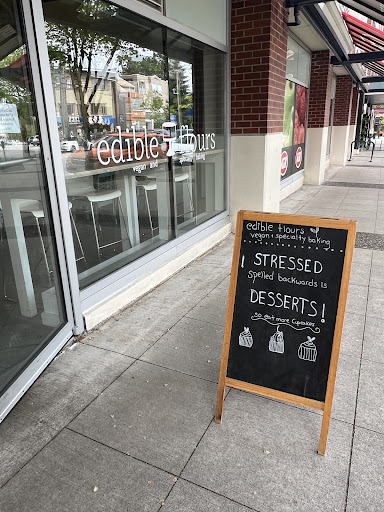 edible flours
vegan and baking
edible flours
vegan + specialty baking
! STRESSED
Spelled backwards is
DESSERTS!
so eat more cupcakes